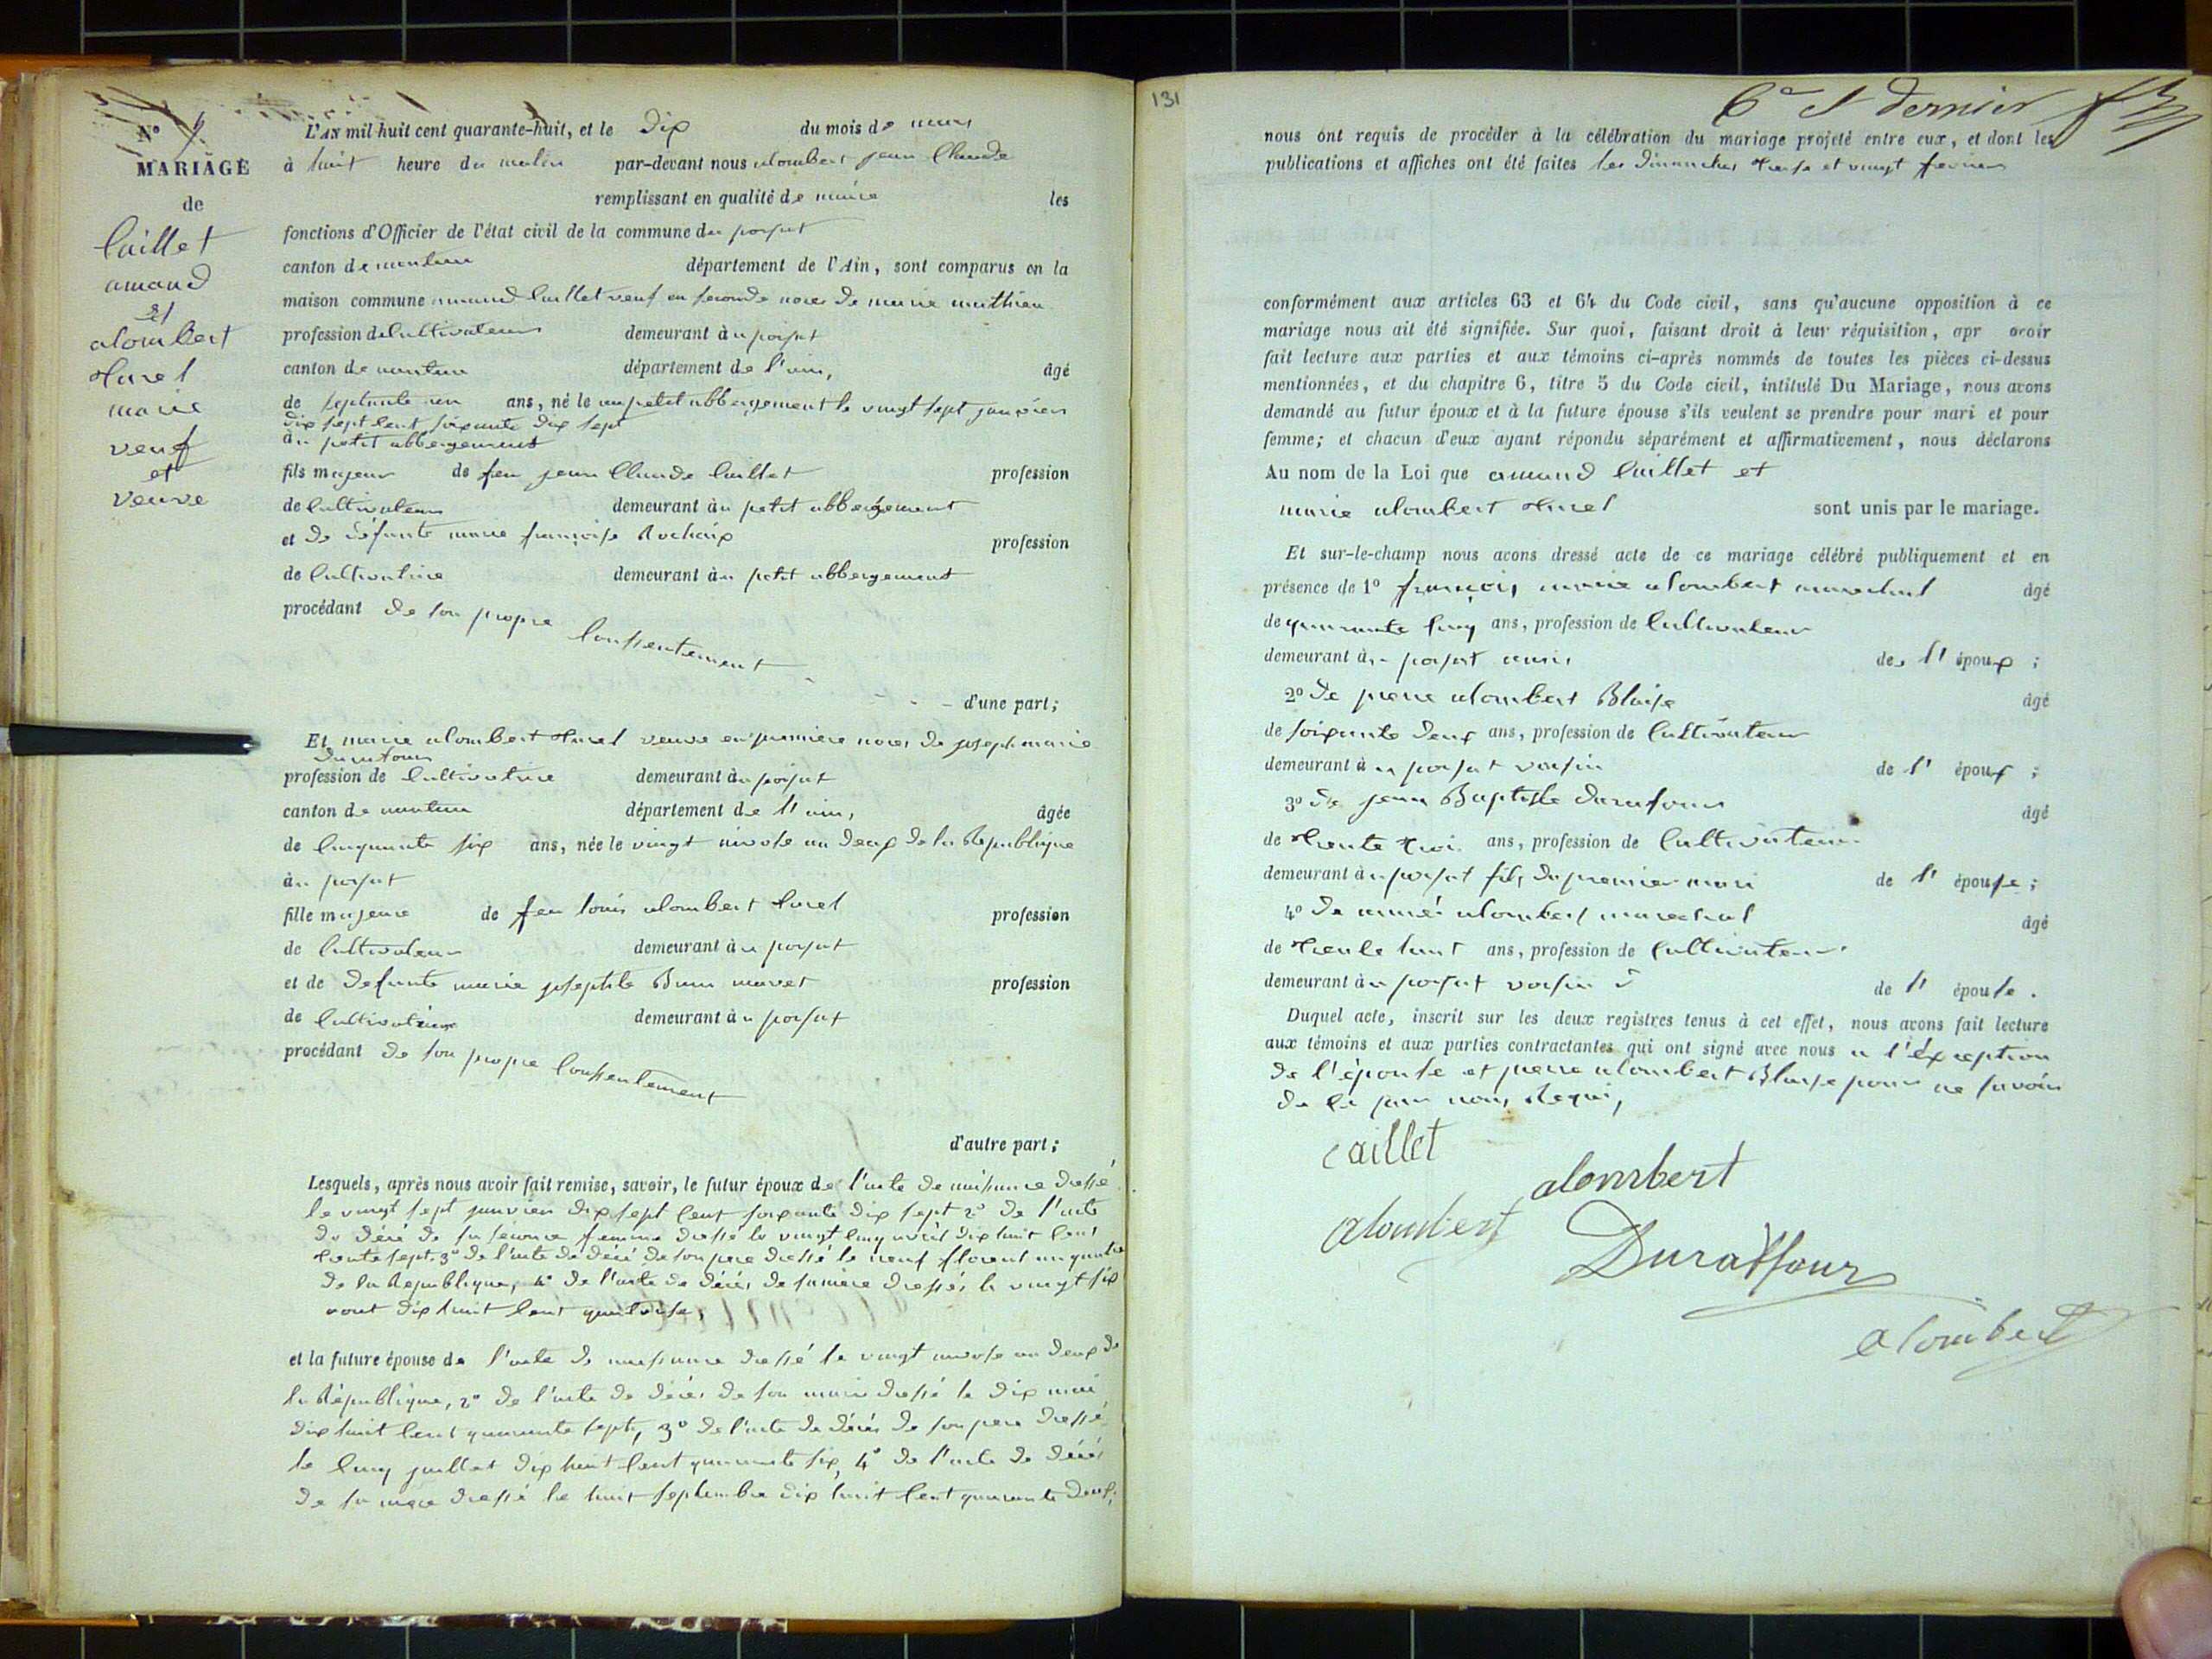 N° 7
MARIAGE
de
Caillet
amand
et
alombert
Hurel
marie
veuf
et
veuve
L'AN mil huit cent quarante-huit, et le dix du mois de mars
à huit heure du matin par-devant nous alombert jean Claude
remplissant en qualité de maire les
fonctions d'Officier de l'état civil de la commune du poisat
canton de nantua département de l'Ain, sont comparus en la
maison commune amand Caillet veuf en seconde noces de marie mathieu
profession de Cultivateur demeurant au poisat
canton de nantua département de l'ain, âgé
de septante un ans, né le au petit abbergement le vingt sept janvier
dix sept cent soixante dix sept
au petit abbergement
fils majeur de feu jean Claude Caillet profession
de Cultivateur demeurant au petit abbergement
et de défunte marie françoise Rochaix profession
de Cultivatrice demeurant au petit abbergement
procédant de son propre Consentement
d'une part;
Et marie alombert Hurel veuve en première noces de joseph marie
profession de Cultivatrice demeurant au poisat
canton de nantua département de l'ain, âgée
de Cinquante six ans, née le vingt nivose an deux de la République
au poisat
fille majeure de feu louis alombert hurel profession
de Cultivateur demeurant au poisat
et de Defunte marie josephte Brun profession
de Cultivatrice demeurant au poisat
procédant de son propre Consentement
d'autre part;
Lesquels, après nous avoir fait remise, savoir, le futur époux de l'acte de naissance dressé
le vingt sept janvier dix sept cent soixante dix sept 2° de l'acte
de décé de sa seconde femme dressé le vingt cinq avril dix huit cent
trente sept, 3° de l'acte de décé de son pere dressé le neuf floreal an quatre
de la République, 4° de l'acte de décés de sa mère dressés le vingt six
aout dix huit cent quatorze,
et la future épouse de l'acte de naissance dressé le vingt nivose an deux de
la République, 2° de l'acte de décés de son mari dressé le dix mai
dix huit cent quarante sept, 3° de l'acte de décés de son pere dressé
le cinq juillet dix huit cent quarante six, 4° de l'acte de décés
de sa mère dressé le huit septembre dix huit cent quarante deux;
131
6e et dernier
nous ont requis de procéder à la célébration du mariage projeté entre eux, et dont les
publications et affiches ont été faites les dimanches treise et vingt fevrier
conformément aux articles 63 et 64 du Code civil, sans qu'aucune opposition à ce
mariage nous ait été signifiée. Sur quoi, faisant droit à leur réquisition, apr avoir
fait lecture aux parties et aux témoins ci-après nommés de toutes les pièces ci-dessus
mentionnées, et du chapitre 6, titre 5 du Code civil, intitulé Du Mariage, nous avons
demandé au futur époux et à la future épouse s'ils veulent se prendre pour mari et pour
femme; et chacun d'eux ayant répondu séparément et affirmativement, nous déclarons
Au nom de la Loi que amand Caillet et
marie alombert Hurel sont unis par le mariage.
Et sur-le-champ nous avons dressé acte de ce mariage célébré publiquement et en
présence de 1° françois marie alombert marechal âgé
de quarante Cinq ans, profession de Cultivateur
demeurant au poisat amis de l'époux ;
2° de pierre alombert Blaise âgé
de soixante deux ans, profession de Cultivateur
demeurant à au poisat voisin de l'époux ;
3° de jean Baptiste âgé
de trente troi ans, profession de Cultivateur
demeurant au poisat fils du premier mari de l'épouse;
4° de aimé alombert marechal âgé
de trente huit ans, profession de Cultivateur
demeurant au poisat voisin de l'épouse.
Duquel acte, inscrit sur les deux registres tenus à cet effet, nous avons fait lecture
aux témoins et aux parties contractantes qui ont signé avec nous a l'éxception
de l'épouse et pierre alombert Blaise pour ne savoir
de ce par nous Requi,
Caillet
alombert
alombert
Duraffour
alombert